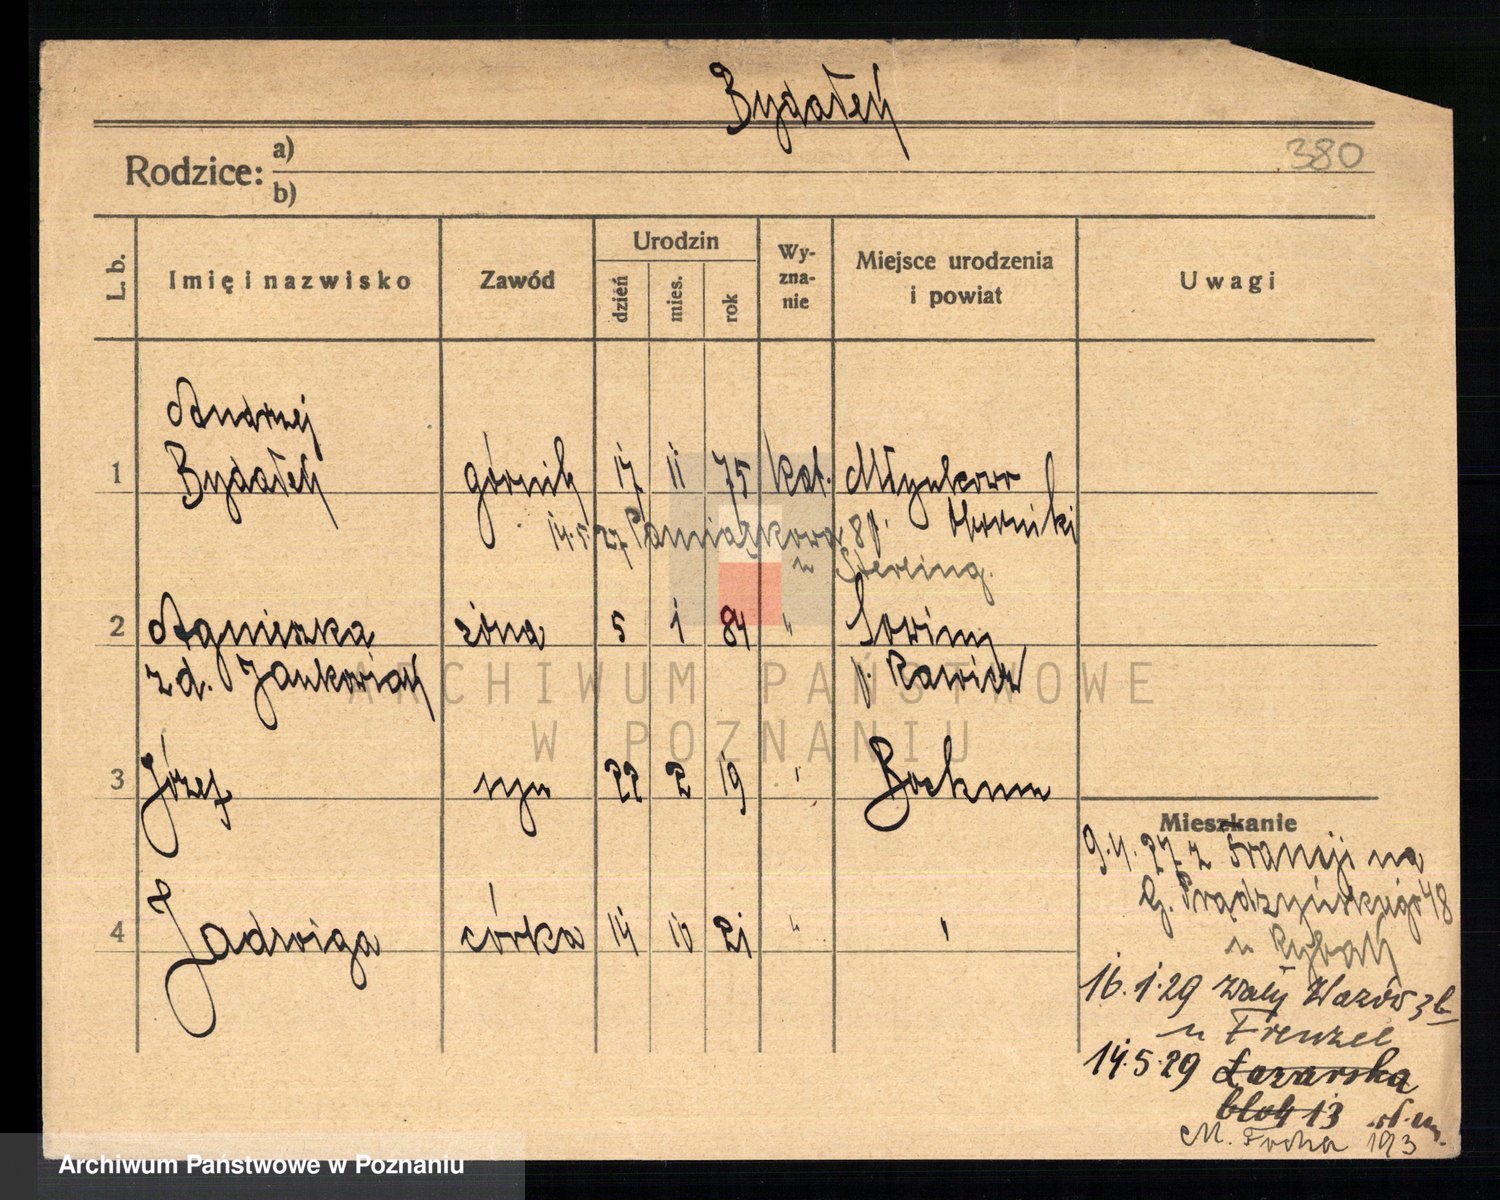 Bydałek
380
Rodzice: a)
b)
L. b. Imię i nazwisko Zawód Urodzin dzień mies. rok Wyznanie Miejsce urodzenia i powiat Uwagi
Andrzej
1 Bydałek górnik 17 11 75 kat. Młynkowo
Oborniki
14.5.27 Pamiątkowa 8 p.
u Sterling.
2 Agnieszka żona 5 1 84 " Sowiny
zd. Jankowiak p. Rawicz
3 Józef syn 22 2 19 " Bochum
4 Jadwiga córka 14 10 21 " "
Mieszkanie
9.4.27 z Francji na
G. Prądzyńskiego 48
u Rybak
16.1.29 Wały Wazów 3b
u Frenzel
14.5.29 Łazarska
blok 13
M. Focha 193
ARCHIWUM PAŃSTWOWE
W POZNANIU
Archiwum Państwowe w Poznaniu